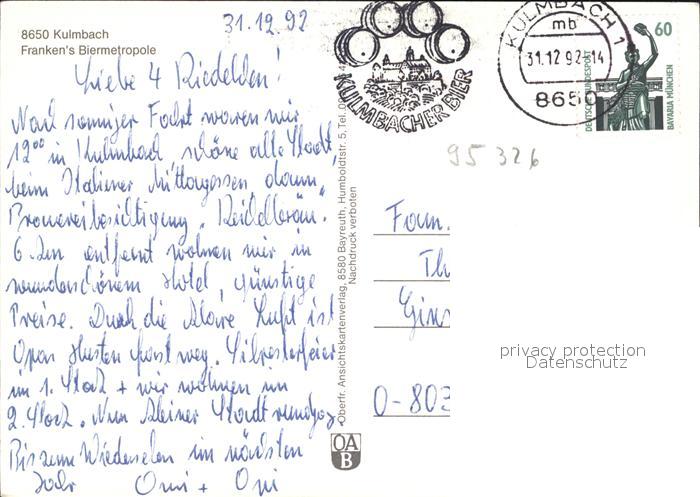 8650 Kulmbach
Franken's Biermetropole
31.12.92
Liebe 4
Nach sonniger Fahrt waren wir
12⁰⁰ in Kulmbach, schöne alte Stadt,
beim Italiener Mittagessen, dann
Brauereibesichtigung "Reichelbräu".
6 km entfernt wohnen wir in
wunderschönem Hotel, günstige
Preise. Durch die klare Luft ist
Opas Husten fast weg. Silvesterfeier
im 1. Stock + wir wohnen im
2. Stock. Nun kleiner Stadtrundgang.
Bis zum Wiedersehen im nächsten
Jahr Omi + Opi
Oberfr. Ansichtskartenverlag, 8580 Bayreuth, Humboldtstr. 5, Tel.
Nachdruck verboten
OAB
KULMBACHER BIER
KULMBACH 1
mb
31.12.92-14
8650
60
DEUTSCHE BUNDESPOST
BAVARIA MÜNCHEN
95326
Fam.
Th
O-803
privacy protection
Datenschutz